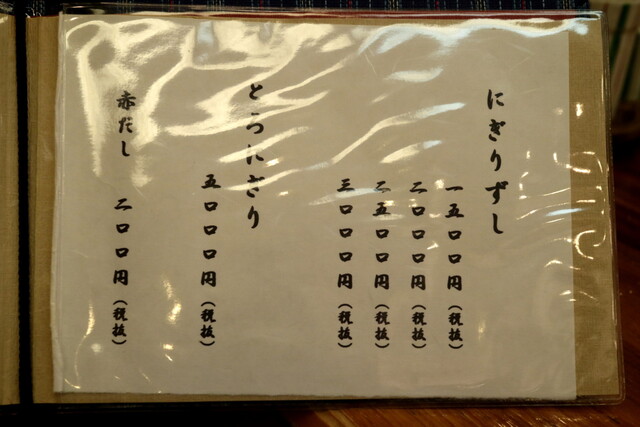 にぎりずし
一五〇〇円（税抜）
二〇〇〇円（税抜）
二五〇〇円（税抜）
三〇〇〇円（税抜）
とろにぎり
五〇〇〇円（税抜）
赤だし 二〇〇円（税抜）